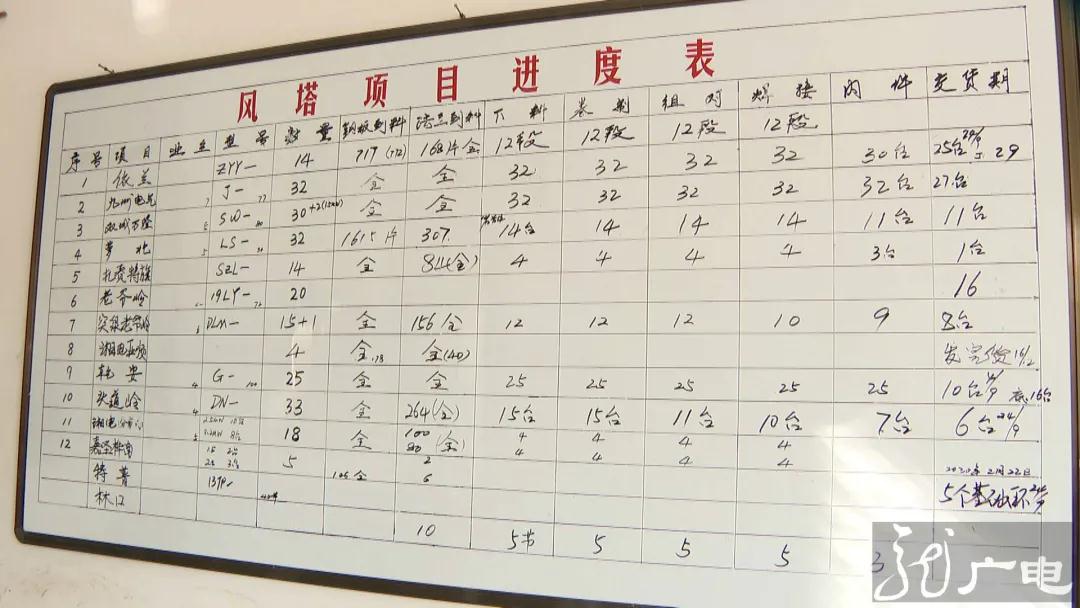 风塔项目进度表
序号 项目 业主 型号 数量 钢板到料 法兰到料 下料 卷制 组对 焊接 内件 交货期
1 依兰 ZYY- 14 717(772) 168片全 12段 12段 12段 12段
2 J- 32 全 全 32 32 32 32 30台 25台 29
3 双城万隆 SW- 30+2 全 全 32 32 32 32 32台 27台
4 萝北 LS- 32 1615片 307 14台 14 14 14 11台 11台
5 扎赉特旗 SZL- 14 全 84(全) 4 4 4 4 3台 1台
6 老爷岭 19LY- 20 16
7 突泉老爷岭 DLM- 15+1 全 156/全 12 12 12 10 9 8台
8 湘电 4 全 全(40) 发完货
9 乾安 G- 25 全 全 25 25 25 25 25 10台 16台
10 头道岭 DN- 33 全 264(全) 15台 15台 11台 10台 7台 6台
11 湘电 18 全 100 (全) 4 4 4 4
12 5 2 4 4 4 4
特普 137P 6 2020年2月22日
林口 5个基础环
10 5节 5 5 5 3
龙广电